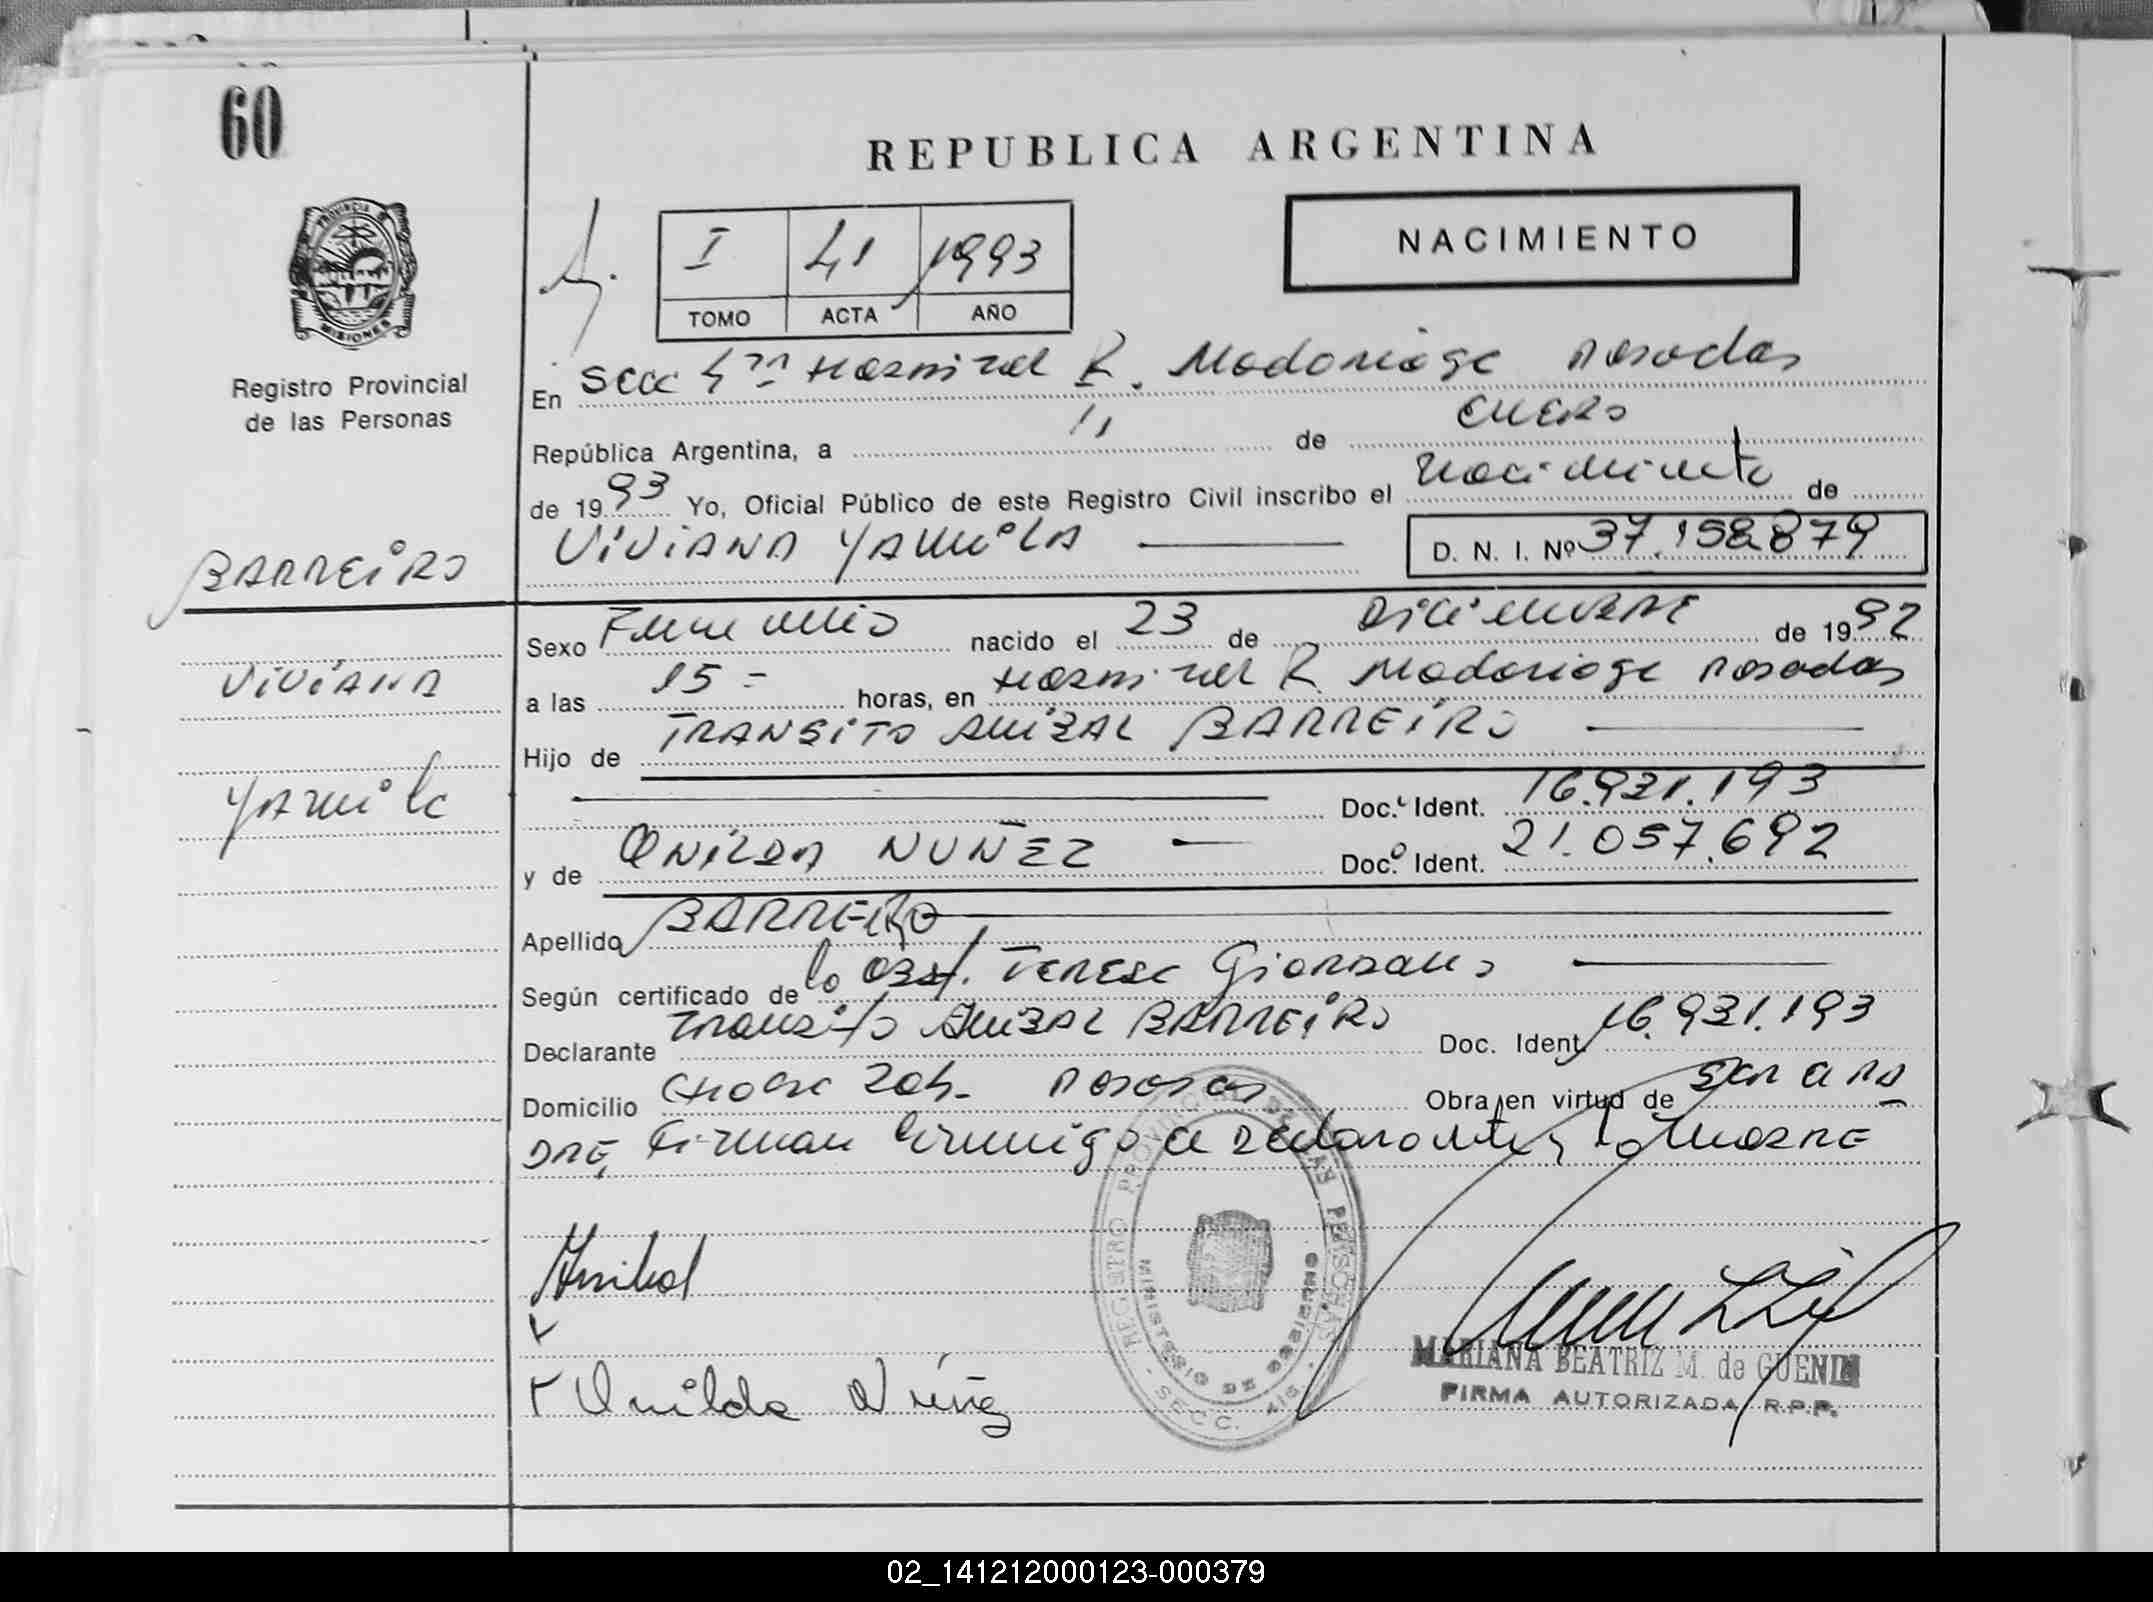 60
REPUBLICA ARGENTINA
PROVINCIA DE
MISIONES
I 41 1993
TOMO ACTA AÑO
NACIMIENTO
Registro Provincial
de las Personas
En Secc 4ta Hospital R. Madariaga Posadas
República Argentina, a 11 de ENERO
de 1993 Yo, Oficial Público de este Registro Civil inscribo el Nacimiento de
VIVIANA YAMILA D. N. I. Nº 37.158.879
BARREIRO
VIVIANA
YAMILA
Sexo Femenino nacido el 23 de DICIEMBRE de 1992
a las 15 = horas, en Hospital R. Madariaga Posadas
Hijo de TRANSITO ANIBAL BARREIRO
Doc. Ident. 16.921.193
y de ONILDA NUÑEZ Doc. Ident. 21.057.692
Apellido BARREIRO
Según certificado de la Obst. Teresa Giordano
Declarante Transito ANIBAL BARREIRO Doc. Ident. 16.921.193
Domicilio 204 - Posadas Obra en virtud de SER a PA
DRE, Firman conmigo el declarante y la MADRE
Anibal
Onilda Nuñez
REGISTRO PROVINCIAL DE LAS PERSONAS
MINISTERIO DE GOBIERNO
SECC. 4ta.
MARIANA BEATRIZ M. de
FIRMA AUTORIZADA R.P.P.
02_141212000123-000379